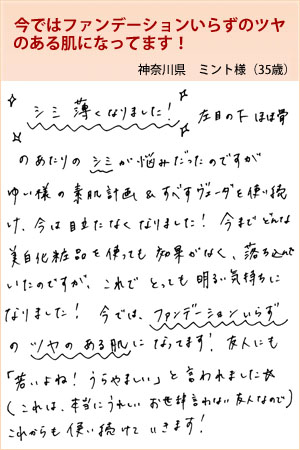 今ではファンデーションいらずのツヤ
のある肌になってます!
神奈川県 ミント様(35歳)
シミ 薄くなりました! 左目の下 ほほ骨
のあたりの シミが悩みだったのですが
ゆい様の素肌計画 & すべすヴェーダを使い続
け、今は目立たなくなりました! 今まで どんな
美白化粧品を使っても 効果がなく、落ち込んで
いたのですが、これで とっても 明るい気持ちに
なりました! 今では、ファンデーションいらず
の ツヤのある肌に なってます! 友人にも
「若いよね! うらやましい」と言われました☆
(これは、本当にうれしい お世辞言わない友人なので)
これからも 使い続けていきます!